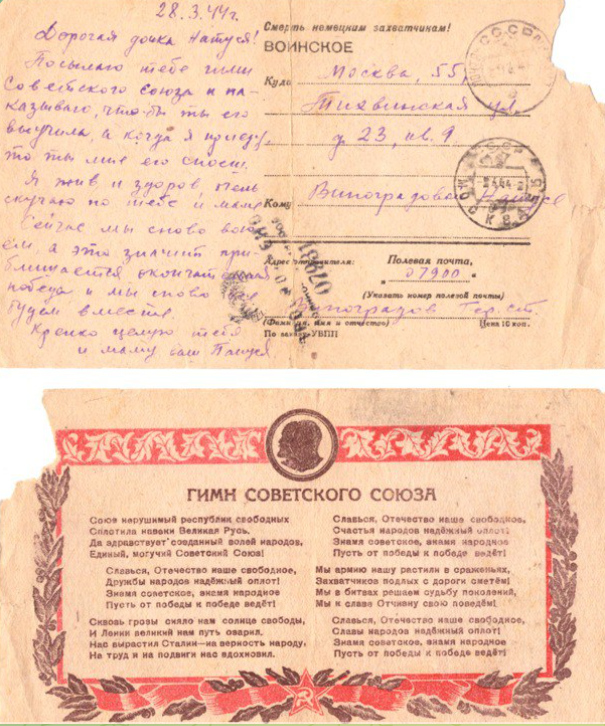 28.3.44г.
Дорогая дочка Натуся!
Посылаю тебе гимн
Советского союза и на-
казываю, чтобы ты его
выучила, а когда я приеду,
то ты мне его споешь.
Я жив и здоров, очень
скучаю по тебе и маме
Сейчас мы снова вою-
ем, а это значит при-
ближается окончательная
победа и мы снова
будем вместе.
Крепко целую тебя
и маму ваш Папуся
Смерть немецким захватчикам!
ВОИНСКОЕ
Куда Москва, 55,
ул.
д 23, кв. 9
Кому Виноградовой
Адрес отправителя: Полевая почта,
07900
(Указать номер полевой почты)
Виноградов
(Фамилия, имя и отчество) Цена 10 коп.
По заказу УВПП
МОСКВА
2 4 44
07981
ГИМН СОВЕТСКОГО СОЮЗА
Союз нерушимый республик свободных
Сплотила навеки Великая Русь,
Да здравствует созданный волей народов,
Единый, могучий Советский Союз!
Славься, Отечество наше свободное,
Дружбы народов надёжный оплот!
Знамя советское, знамя народное
Пусть от победы к победе ведёт!
Сквозь грозы сияло нам солнце свободы,
И Ленин великий нам путь озарил.
Нас вырастил Сталин—на верность народу,
На труд и на подвиги нас вдохновил.
Славься, Отечество наше свободное,
Счастья народов надёжный оплот!
Знамя советское, знамя народное
Пусть от победы к победе ведёт!
Мы армию нашу растили в сраженьях,
Захватчиков подлых с дороги сметём!
Мы в битвах решаем судьбу поколений,
Мы к славе Отчизну свою поведём!
Славься, Отечество наше свободное,
Славы народов надёжный оплот!
Знамя советское, знамя народное
Пусть от победы к победе ведёт!